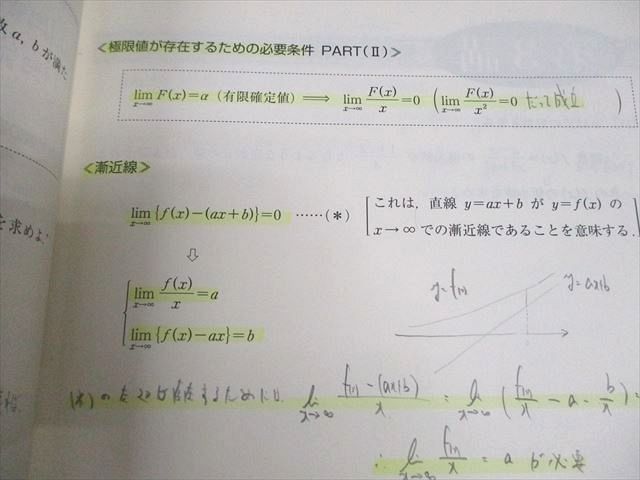 数a, bが満た
<極限値が存在するための必要条件 PART(Ⅱ)>
lim_{x→∞} F(x)=α (有限確定値) ⟹ lim_{x→∞} F(x)/x=0 (lim_{x→∞} F(x)/x²=0 だって成立)
<漸近線>
を求めよ.
lim_{x→∞}{f(x)−(ax+b)}=0 ……(*) [これは, 直線 y=ax+b が y=f(x) の
x→∞ での漸近線であることを意味する.]
⇩
lim_{x→∞} f(x)/x=a
lim_{x→∞}{f(x)−ax}=b
y=f(x) y=ax+b
(*)の するためには lim_{x→∞} f(x)−(ax+b)/x = lim_{x→∞} (f(x)/x − a − b/x) =
∴ lim_{x→∞} f(x)/x = a が必要